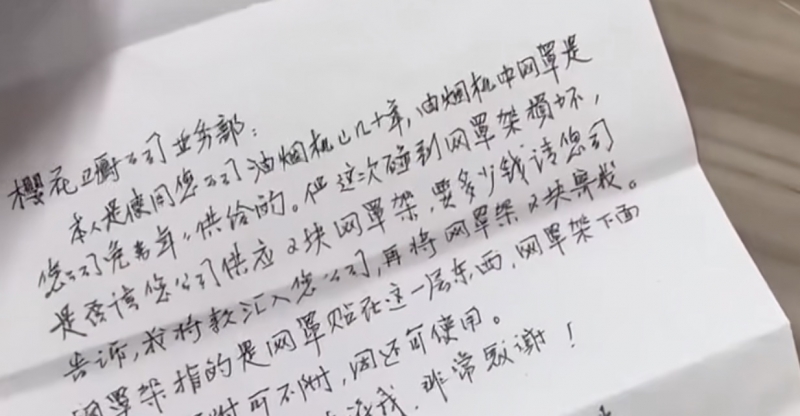 樱花卫厨公司业务部：
本人是使用您公司油烟机已几十年，油烟机中网罩是
您公司免费年年供给的。但这次碰到网罩架损坏，
是否该您公司供应2块网罩架，要多少钱请您司
告诉，我将款汇入您公司，再将网罩架2块寄我。
网罩架指的是网罩贴在这一层东西，网罩架下面
附可不附，网还可使用。
我，非常感谢！